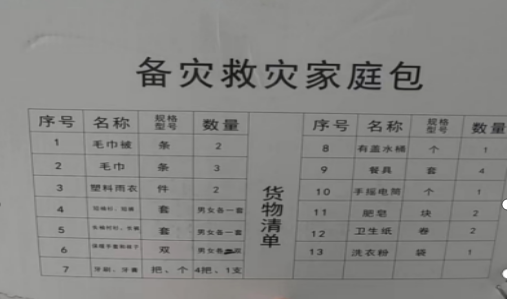 备灾救灾家庭包
序号 名称 规格型号 数量
1 毛巾被 条 2
2 毛巾 条 3
3 塑料雨衣 件 2
4 套 男女各一套
5 套 男女各一套
6 双 男女各二双
7 牙刷、牙膏 把、个 4把、1支
货物清单
序号 名称 规格型号 数量
8 有盖水桶 个 1
9 餐具 套 4
10 手摇电筒 个 1
11 肥皂 块 2
12 卫生纸 卷 2
13 洗衣粉 袋 1